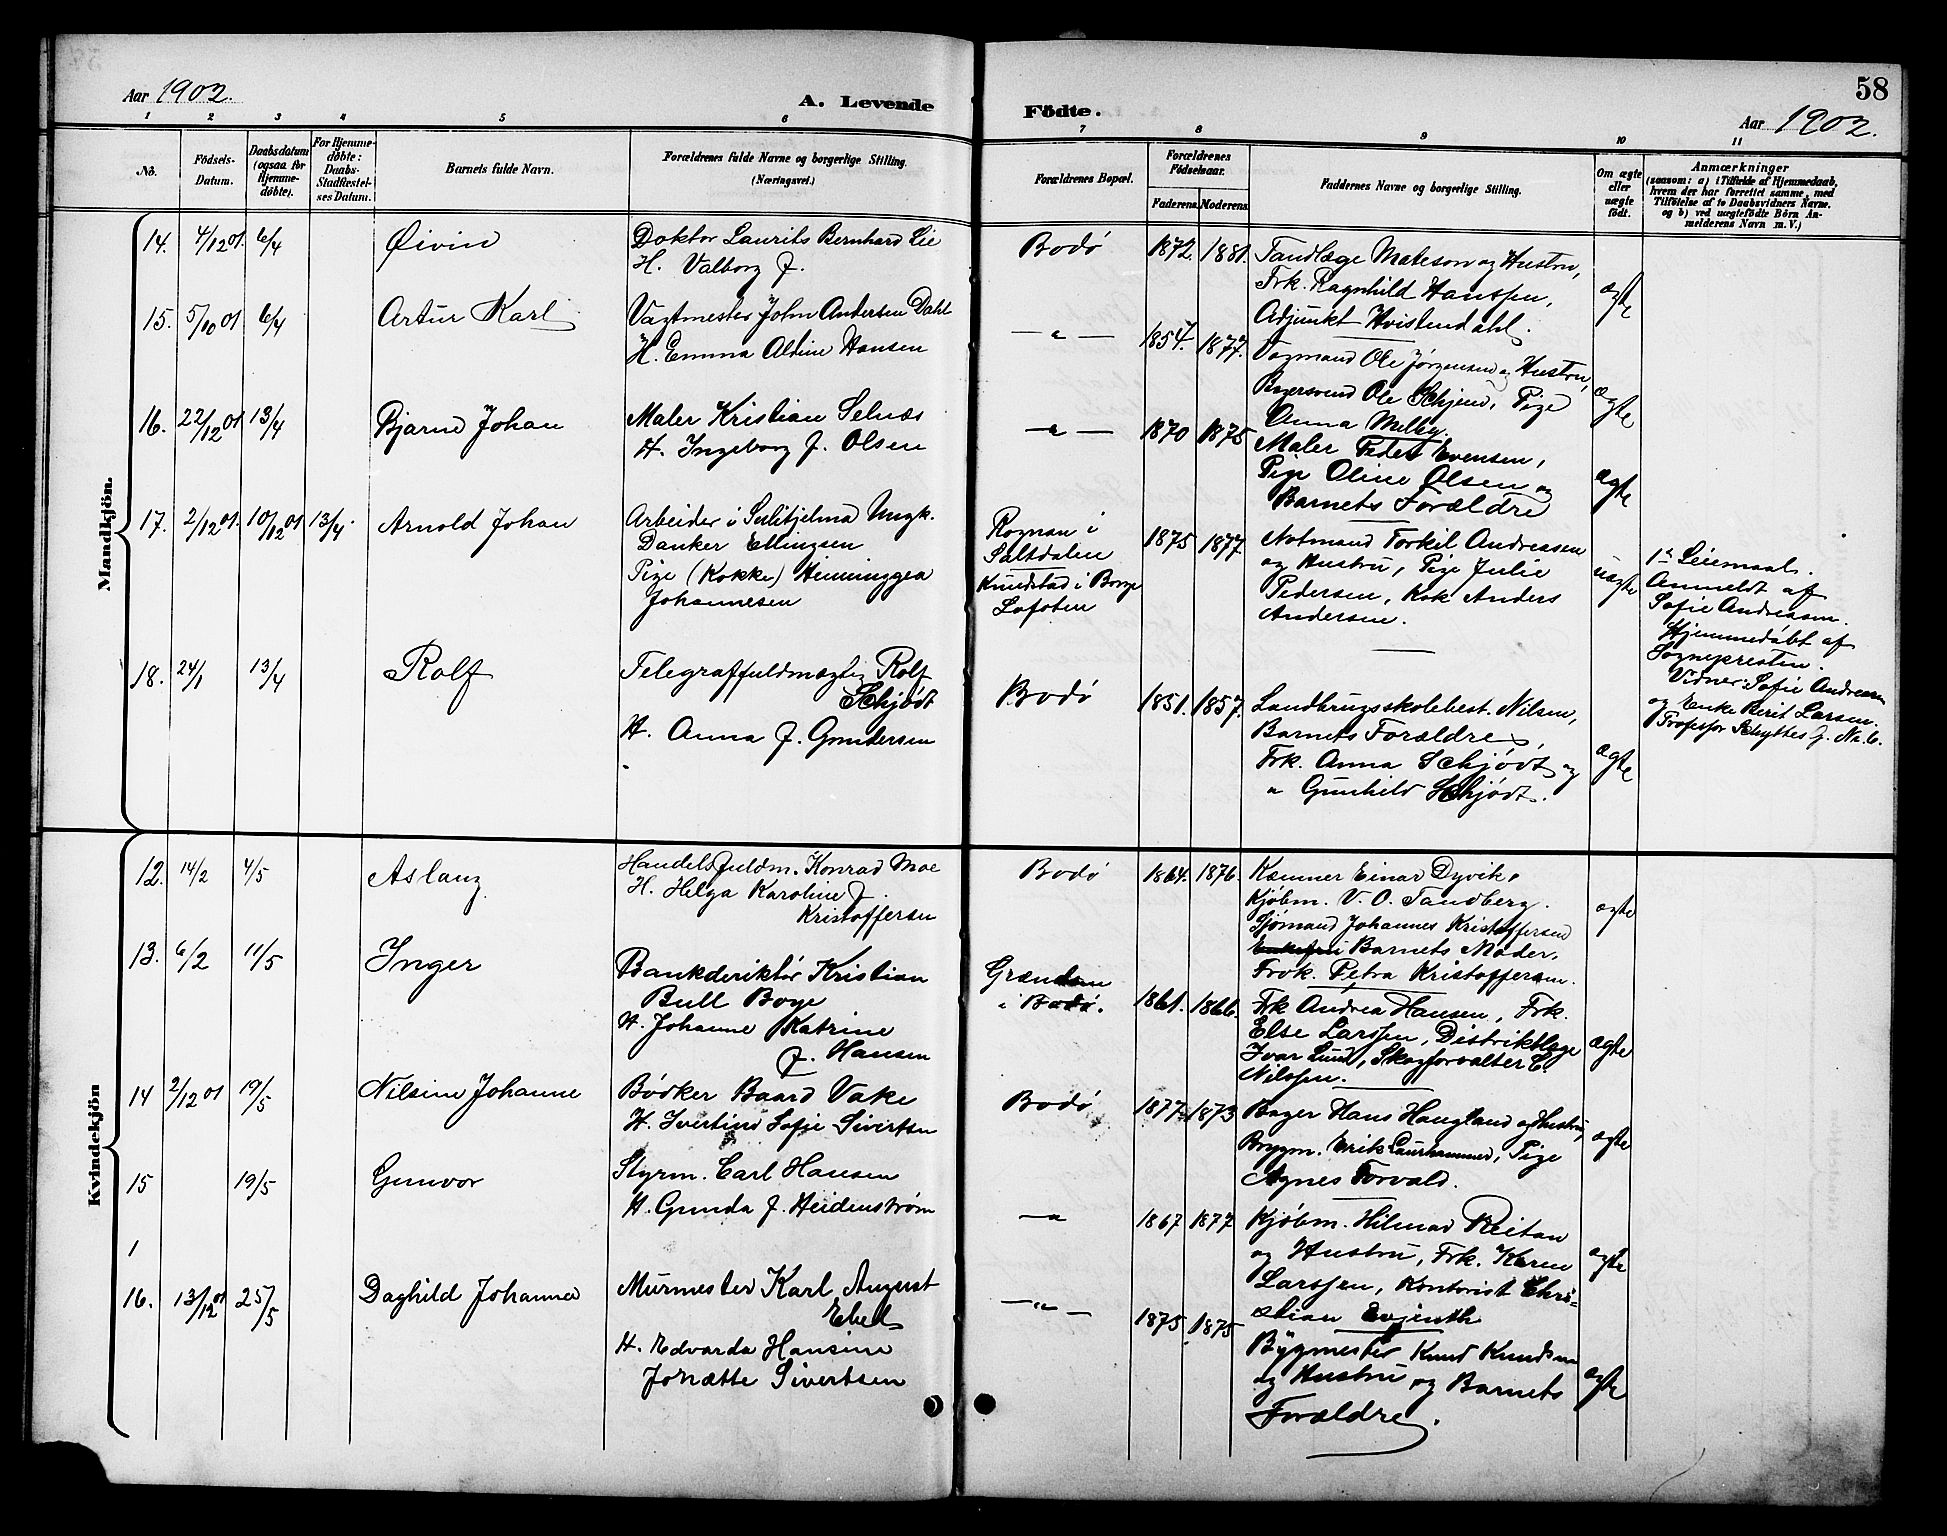 58
Aar 1902.
A. Levende
Födte.
Aar 1902.
1 2 3 4 5 6 7 8 9 10 11
No.
Födsels-
Datum.
Daabsdatum
(ogsaa for
Hjemme-
döbte).
For Hjemme-
døbte:
Daabs-
Stadfæstel-
ses Datum.
Barnets fulde Navn.
Forældrenes fulde Navne og borgerlige Stilling.
(Næringsvei.)
Forældrenes Bopæl.
Forældrenes
Födselsaar.
Faderens. Moderens.
Faddernes Navne og borgerlige Stilling.
Om ægte
eller
uægte
födt.
Anmærkninger
(saasom: a) i Tilfælde af Hjemmedaab,
hvem der har forrettet samme, med
Tilföielse af to Daabsvidners Navne.
og b) ved uægtefödte Börn An-
melderens Navn m. V.)
Mandkjön.
14. 4/12 01. 6/4 Øivin
Doktor Laurits Bernhard Lie
H. Valborg f.
Bodó 1872. 1881.
Tandlæge Mateson og Hustru,
Frk. Ragnhild Hanssen,
Adjunkt Hvistendahl.
ægte
15. 5/10 01 6/4 Artur Karl
Vagtmester John Andersen Dahl
H. Emma Aldine Hansen
— " — 1854. 1877.
Vogmand Ole Jørgensen og Hustru,
Bagersvend Ole Schjend, Pige
Anna Melby.
ægte
16. 22/12 01 13/4 Bjarne Johan
Maler Kristian Selnæs
H. Ingeborg f. Olsen
— " — 1870 1875
Maler Peder Evensen,
Pige Oline Olsen og
Barnets Forældre
ægte
17. 2/12 01. 10/12 01 13/4. Arnold Johan
Arbeider i Sulitjelma Ungk.
Danker Ellingsen
Pige (Kokke) Henninggea
Johannesen
Rognan i
Saltdalen
Knudstad i Borge
Lofoten
1875 1877.
Notmand Torkil Andreassen
og Hustru, Pige Julie
Pedersen, Kok Anders
Andersen.
uægte
1ste Leiemaal.
Anmeldt af
Sofie Andreasen.
Hjemmedöbt af
Sognepresten.
Vidner: Sofie Andreasen
og Enke Berit Larsen.
Professor Schyttes g. No. 6.
18. 24/1 13/4 Rolf
Telegraffuldmægtig Rolf
Schjödt
H. Anna f. Gundersen
Bodó 1851. 1857.
Landbrugsskolebest. Nilsen,
Barnets Forældre,
Frk. Anna Schjödt og
" Gunhild Schjödt.
ægte
Kvindekjön
12. 14/2 4/5 Aslaug
Handelsfuldm. Konrad Moe
H. Helga Karoline f.
Kristoffersen
Bodó 1864. 1876.
Kæmner Einar Dyvik.
Kjöbm. V. O. Tandberg.
Sjömand Johannes Kristoffersen
Barnets Moder.
Frok. Petra Kristoffersen.
ægte
13. 6/2 11/5 Inger
Bankderiktör Kristian
Bull Boye
H. Johanne Katrine
f. Hansen
Grændsen
i Bodö.
1861. 1866.
Frk Andrea Hansen, Frk.
Else Larssen, Distriktlæge
Ivar Lund, Skogforvalter C.
Nilssen.
ægte
14 2/12 01 19/5 Nilsine Johanne
Bödker Baard Vake
H. Ivertine Sofie Sivertsen
Bodó 1877. 1873
Bager Hans Haugland og Hustru,
Brygm. Erik Laurhammer, Pige
Agnes Forvald.
ægte
15 19/5 Gunvor
Styrm. Carl Hansen
H. Gunda f. Heidenström
— " 1867 1877
Kjöbm. Hilmar Reitan
og Hustru, Frk. Karen
Larssen, Kontorist Chri-
stian Evjenth
ægte
1
16. 13/12 01 25/5 Daghild Johanna
Murmester Karl August
Ebel
H. Edvarda Hansine
Johætte Sivertsen
— " — 1875. 1875
Bygmester Knud Knudsen
og Hustru og Barnets
Forældre.
ægte